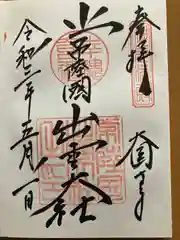 奉拝
常陸國
出雲大社
令和二年五月一日